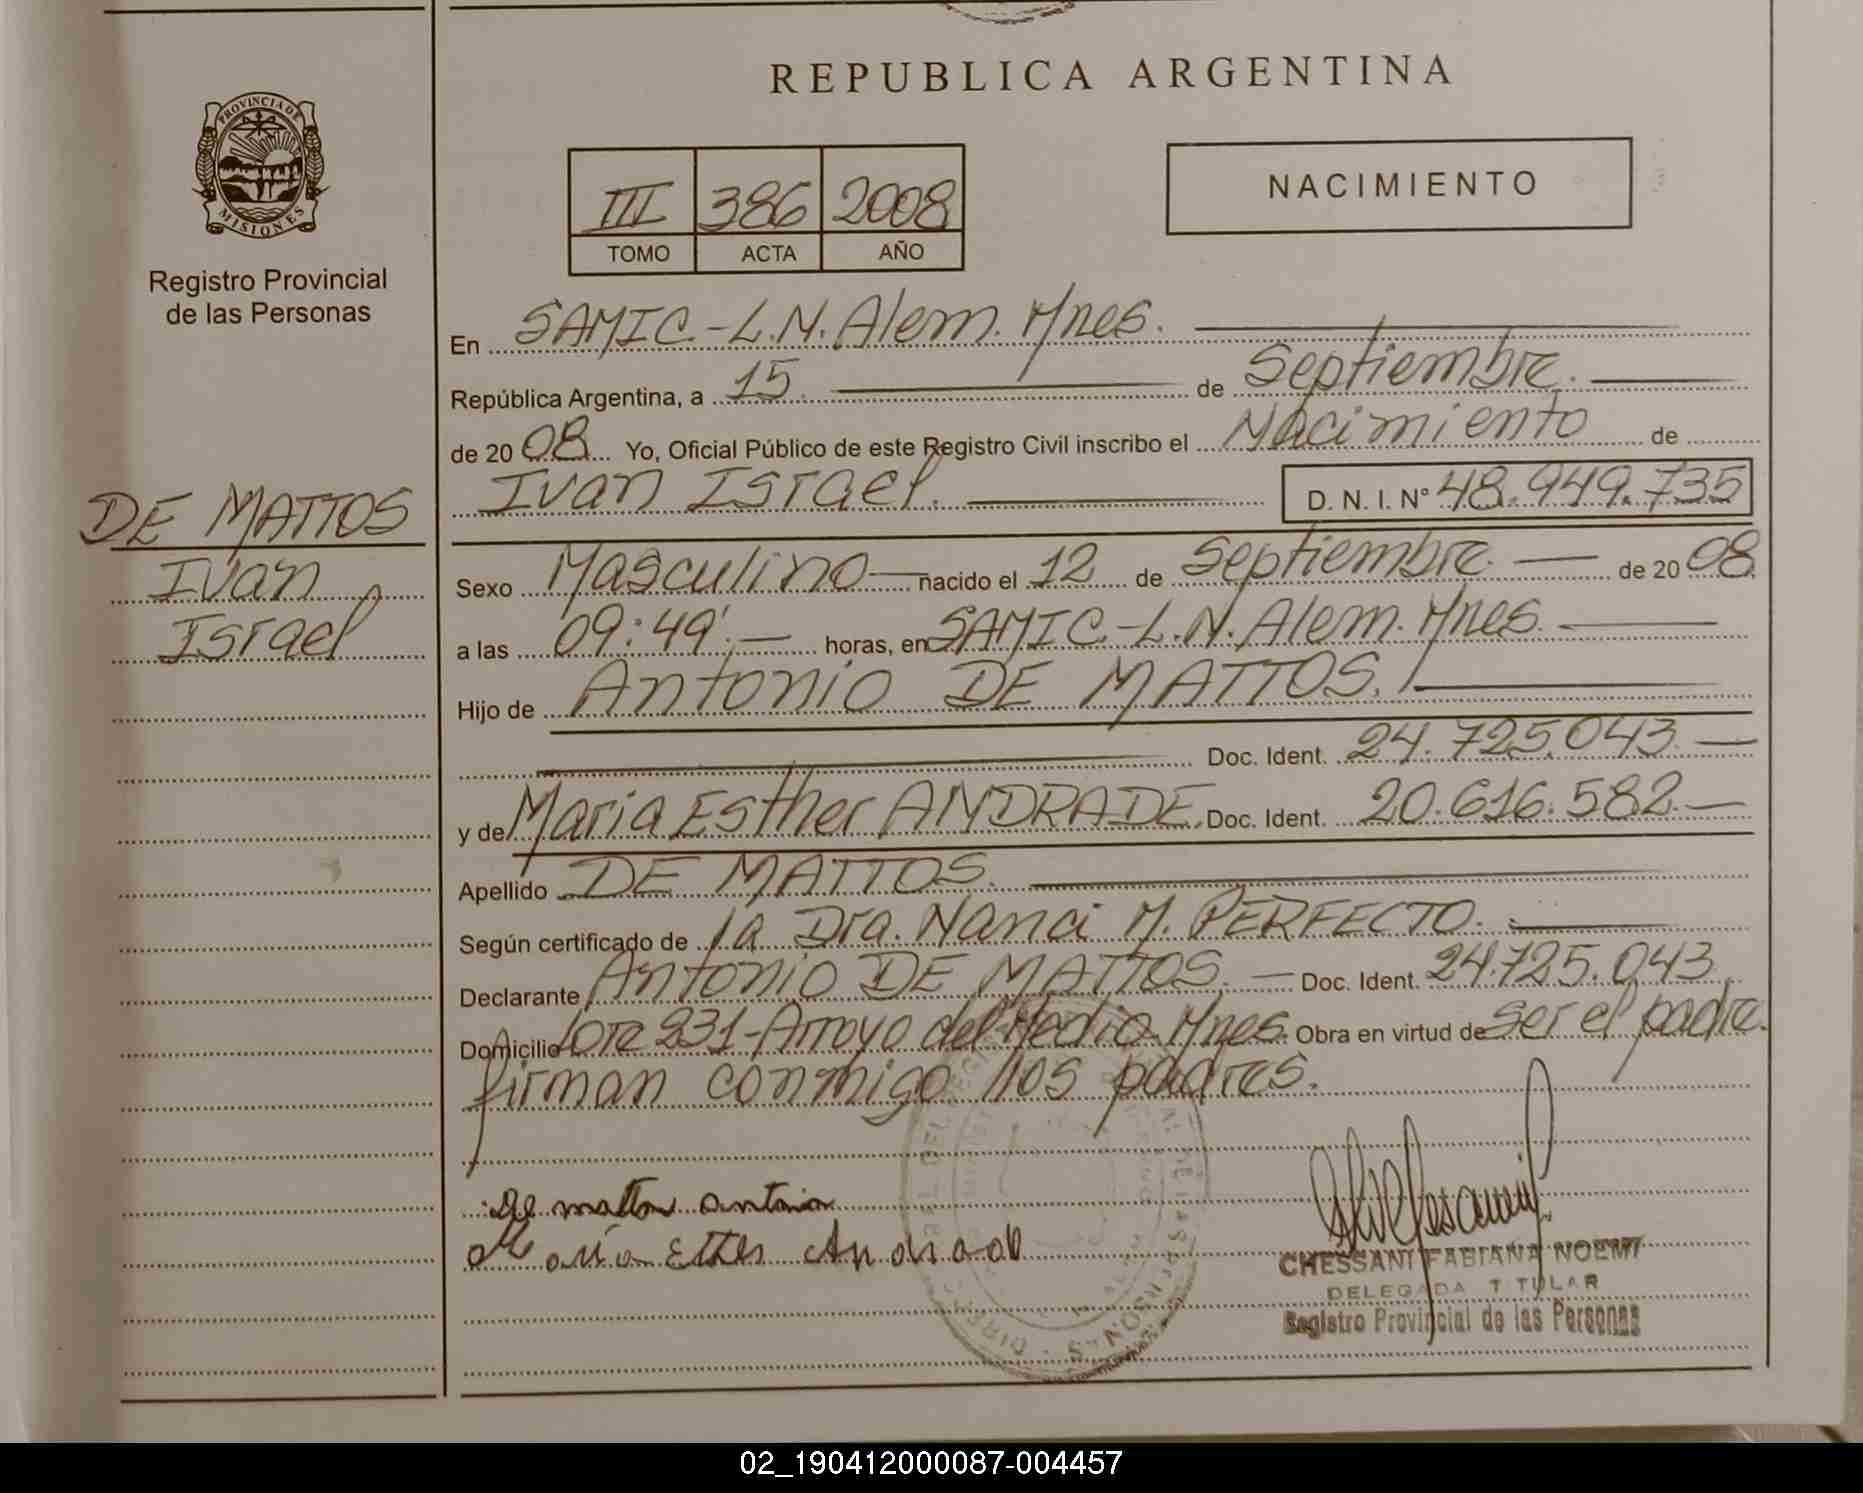 REPUBLICA ARGENTINA
PROVINCIA DE MISIONES
Registro Provincial
de las Personas
III 386 2008
TOMO ACTA AÑO
NACIMIENTO
En SAMIC-L.N.Alem.Mnes.
República Argentina, a 15 de Septiembre.
de 2008 Yo, Oficial Público de este Registro Civil inscribo el Nacimiento de
Ivan Israel. D. N. I. N° 48.949.735
DE MATTOS
Ivan
Israel
Sexo Masculino nacido el 12 de Septiembre de 2008
a las 09:49'. horas, en SAMIC-L.N.Alem.Mnes.
Hijo de Antonio DE MATTOS.
Doc. Ident. 24.725.043
y de Maria Esther ANDRADE. Doc. Ident. 20.616.582
Apellido DE MATTOS.
Según certificado de la Dra. Nanci M. PERFECTO.
Declarante Antonio DE MATTOS. Doc. Ident. 24.725.043
Domicilio Lote 231-Arroyo del Medio.Mnes. Obra en virtud de ser el padre.
firman conmigo los padres.
De matto antonio
Maria Esther Andrade
CHESSANI FABIANA NOEMI
DELEGADA TITULAR
Registro Provincial de las Personas
02_190412000087-004457